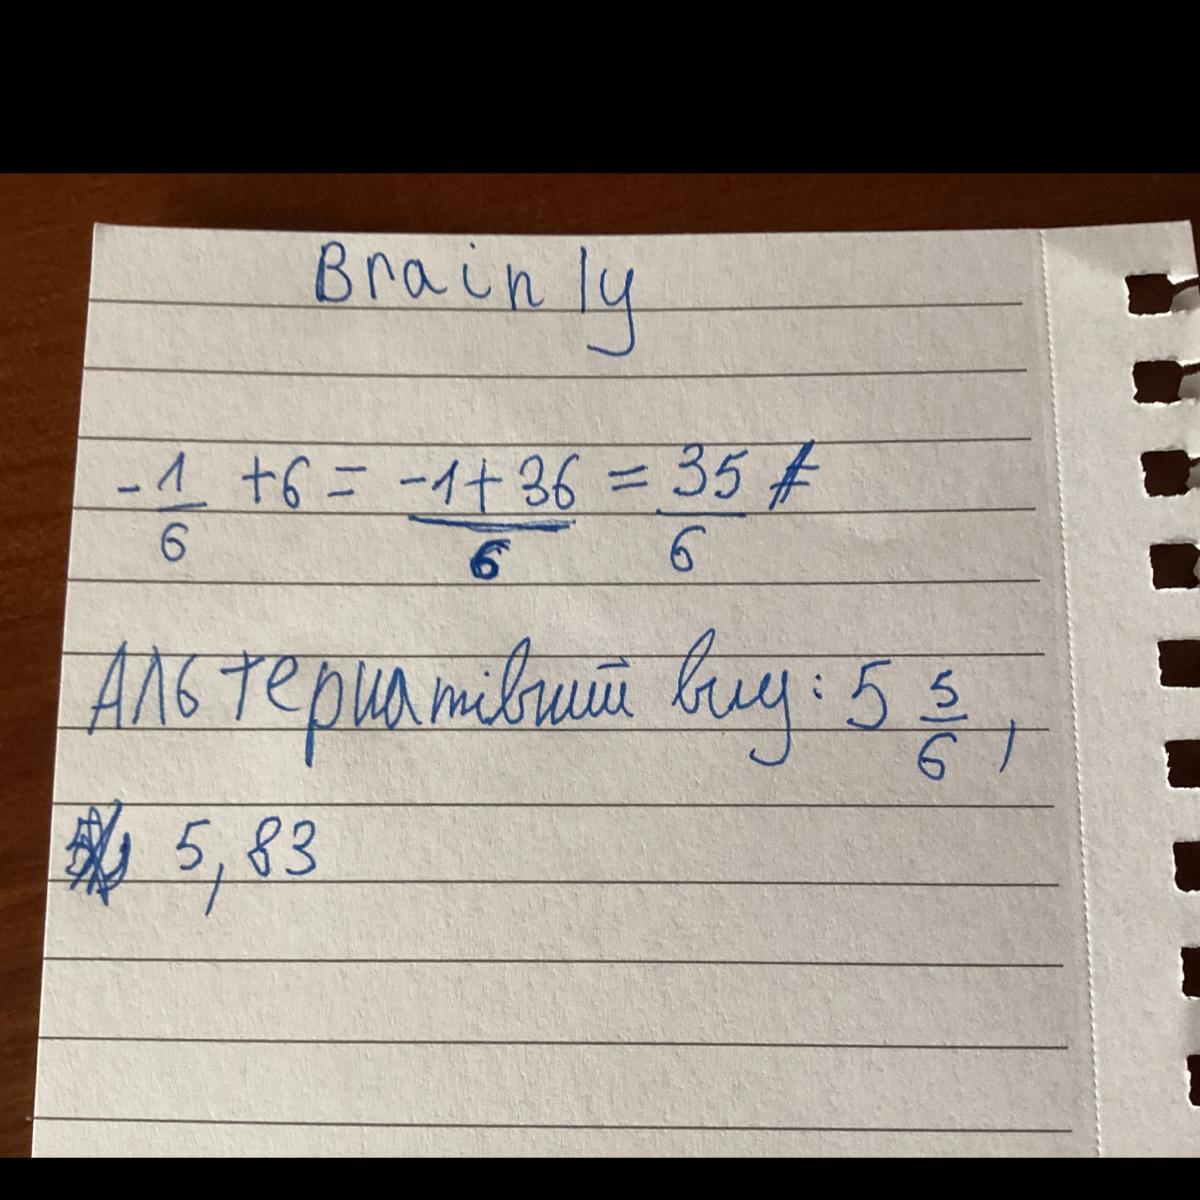 Brainly
-1/6 +6 = -1+36/6 = 35/6
Альтернативний вид: 5 5/6,
5,83